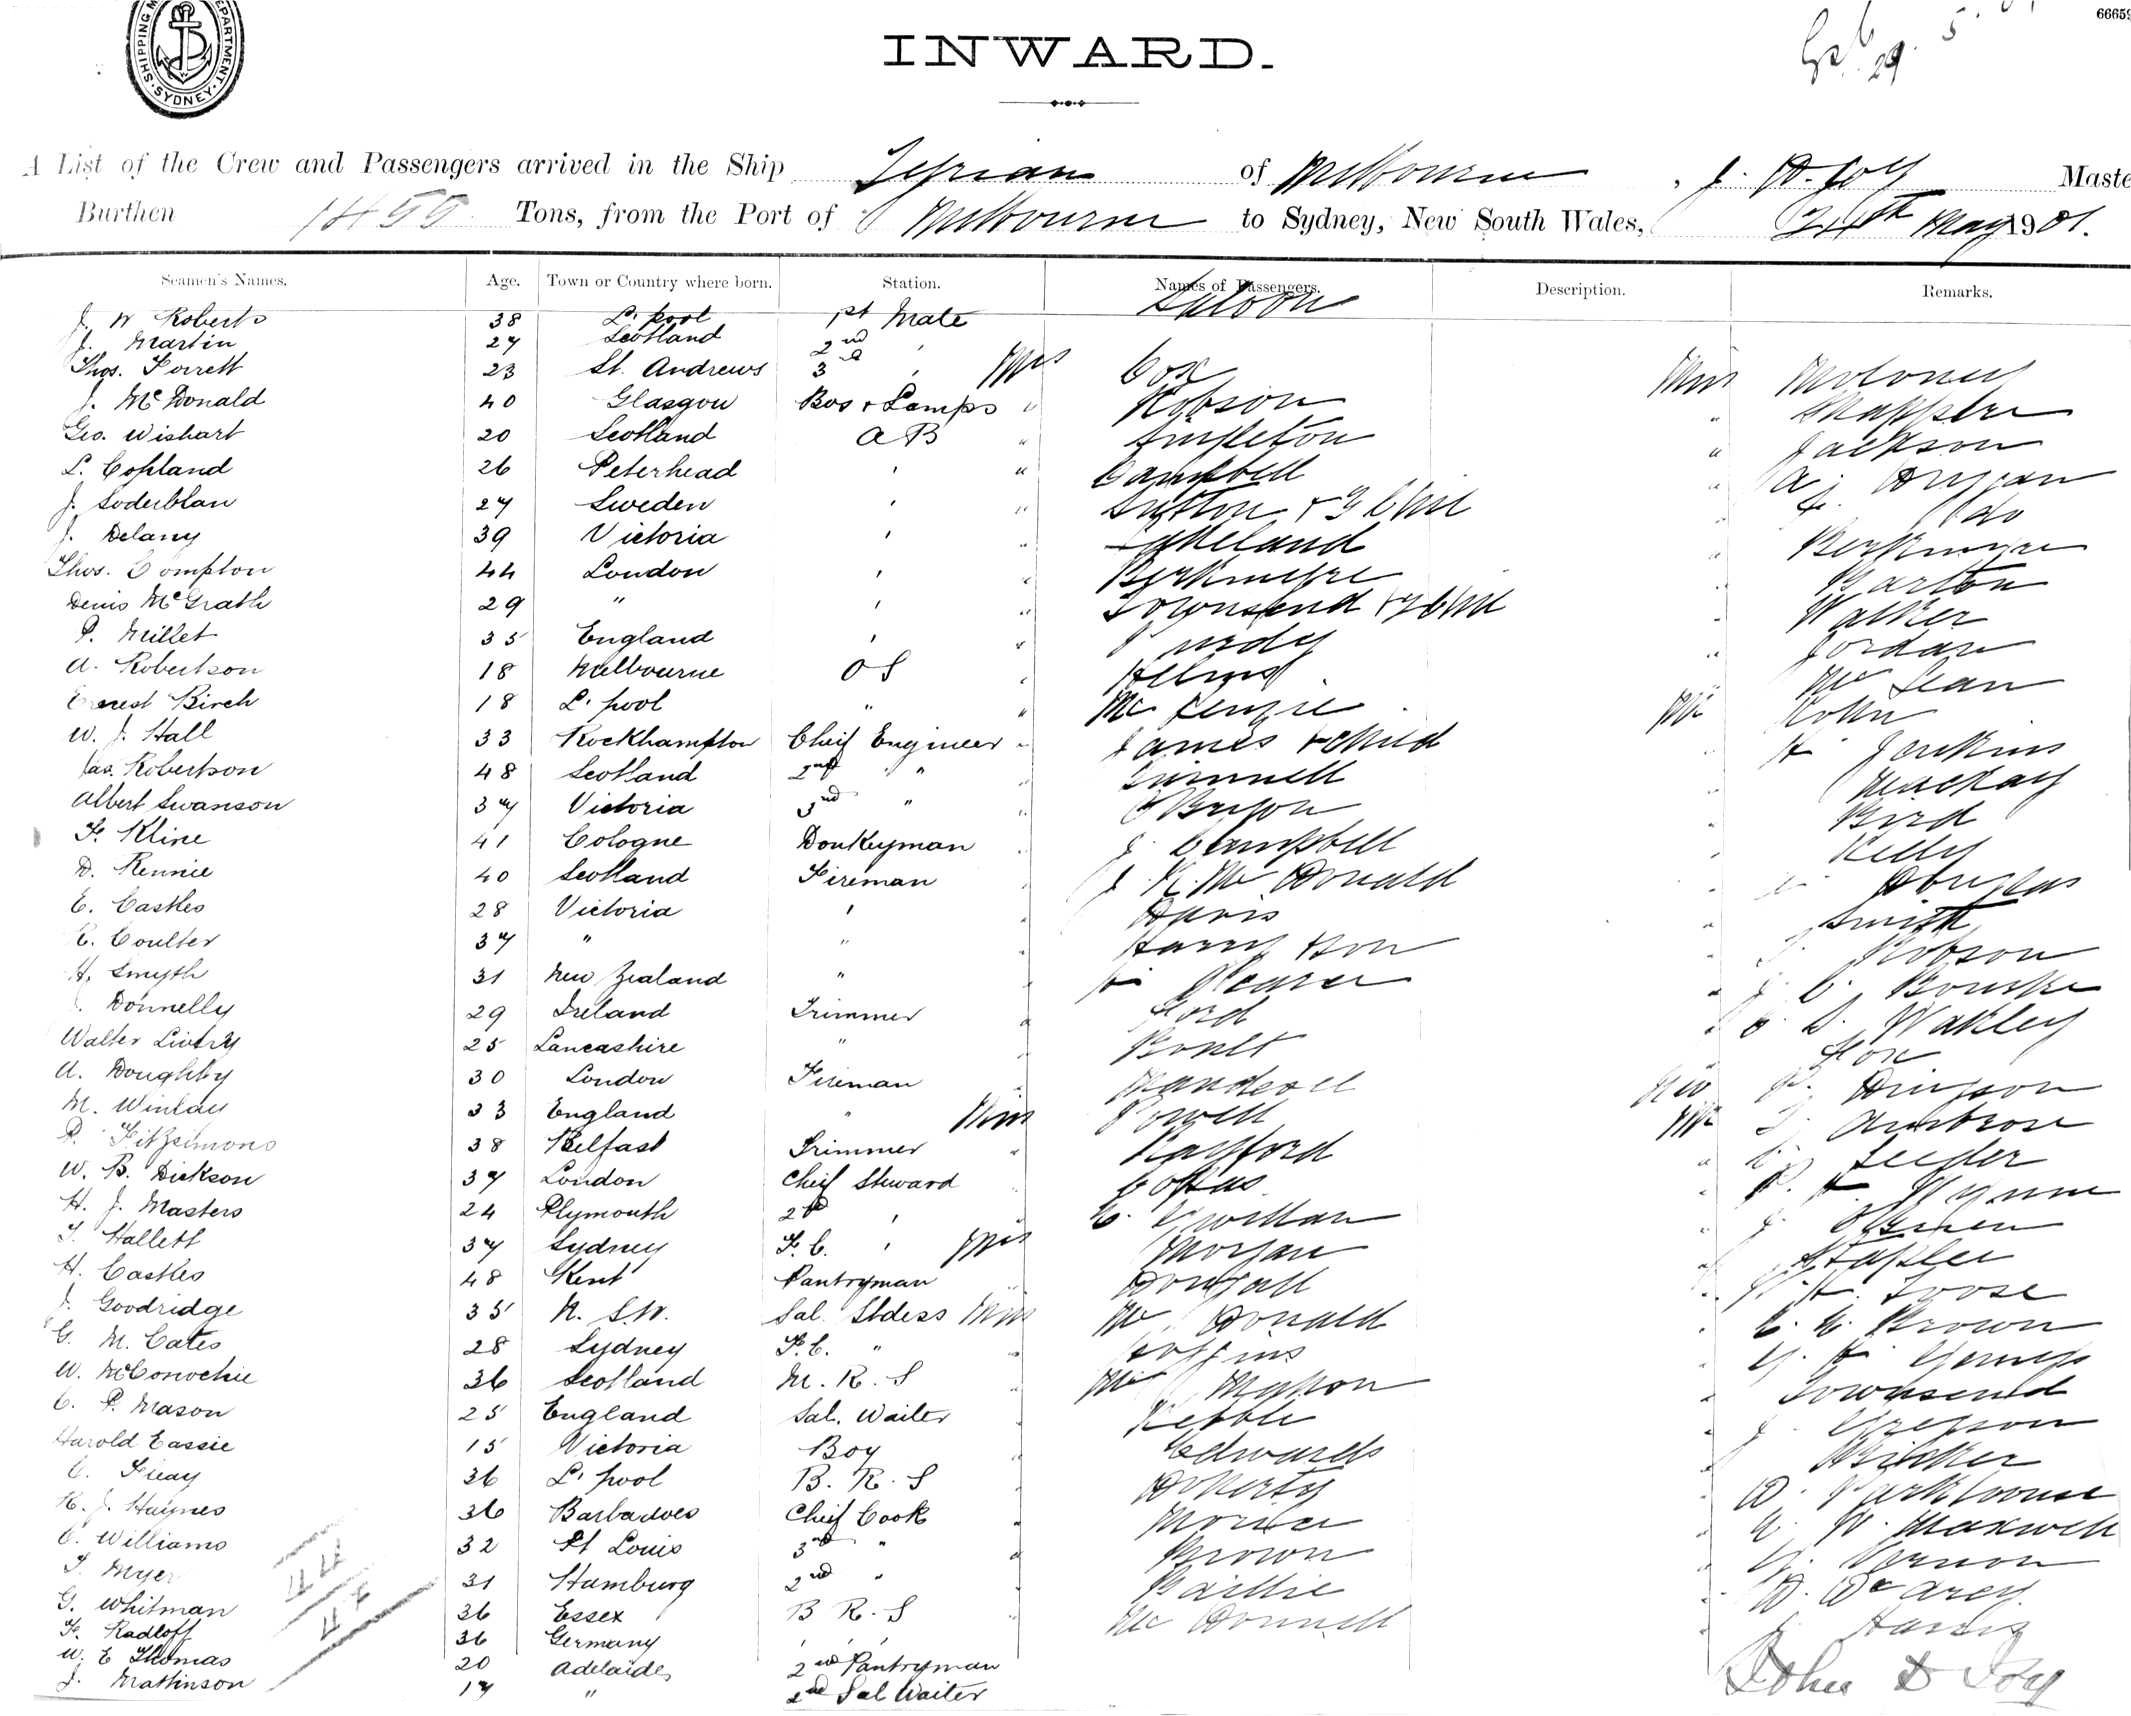 SHIPPING M DEPARTMENT. SYDNEY.
6665
INWARD.
A List of the Crew and Passengers arrived in the Ship Tyrian of Melbourne, J. D. Joy Maste
Burthen 1455 Tons, from the Port of Melbourne to Sydney, New South Wales, 24th May 1901.
Seamen's Names. Age. Town or Country where born. Station. Names of Passengers. Description. Remarks.
Saloon
J. W Roberts 38 L'pool 1st Mate
J. Martin 27 Scotland 2nd '
Thos. 23 St. Andrews 3rd ' Mrs Cox Miss Moloney
J. McDonald 40 Glasgow Bos & Lamps " Robson "
Geo. Wishart 20 Scotland AB " Singleton " Jackson
L. Copland 26 Peterhead ' " Campbell " A.
J. Soderblan 27 Sweden ' " Sutton & 3 Chil " do
J. Delany 39 Victoria ' " " Berkmyre
Thos. Compton 44 London ' " Berkmyre " Barton
Denis McGrath 29 " ' " Townsend & 3 Chil " Walker
P. Millet 35 England ' " Purdy " Jordan
A. Robertson 18 Melbourne OS " " McLean
Ernest Birch 18 L'pool " " McKenzie Mr
W. J. Hall 33 Rockhampton Chief Engineer " James & child " H Jenkins
Jas. Robertson 48 Scotland 2nd " " " Mackay
Albert Swanson 37 Victoria 3rd " " O'Bryon " Bird
F. Kline 41 Cologne Donkeyman " J Campbell " Kelly
D. Rennie 40 Scotland Fireman " J. K. McDonald " Douglas
E. Castles 28 Victoria ' " Davis " Smith
E. Coulter 37 " " " Harry Hon " J. Robson
H. Smyth 31 New Zealand " " H " J C
J. Donnelly 29 Ireland Trimmer " Ford " C. S. Wakley
Walter Livery 25 Lancashire " " Boult Hon
A. Doughty 30 London Fireman " Rev P.
M. Winlay 33 England " Miss Powell Mr J Ambrose
P. Fitzsimons 38 Belfast Trimmer " Rayford " C
W. B. Dickson 37 London Chief Steward " " P. F Wynne
H. J. Masters 24 Plymouth 2nd ' C. " J.
T. Hallett 37 Sydney F.C. ' Mrs Morgan " Stapler
H. Castles 48 Kent Pantryman " Dougall " H. Toose
J. Goodridge 35 N.S.W. Sal. Stdess Miss McDonald " C. C. Brown
G. M. Cates 28 Sydney F.C. " "
W. McConochie 36 Scotland M.R.S " McMahon " Townsend
C. P. Mason 25 England Sal. Waiter " Kebble " J.
Harold Cassie 15 Victoria Boy " Edwards "
C. 36 L'pool B.R.S " Doherty " D. Parkhouse
H. J. Haynes 36 Barbadoes Chief Cook " " W. Maxwell
C. Williams 32 St Louis 3rd " " Brown " Vernon
T. Myer 31 Hamburg 2nd " " Baillie " D. Darcy
G. Whitman 36 Essex B R.S " McDonnell " Harris
F. Radloff 36 Germany ' '
W. E Thomas 20 Adelaide 2nd Pantryman
J. Mattinson 17 " 2nd Sal Waiter
John D Joy